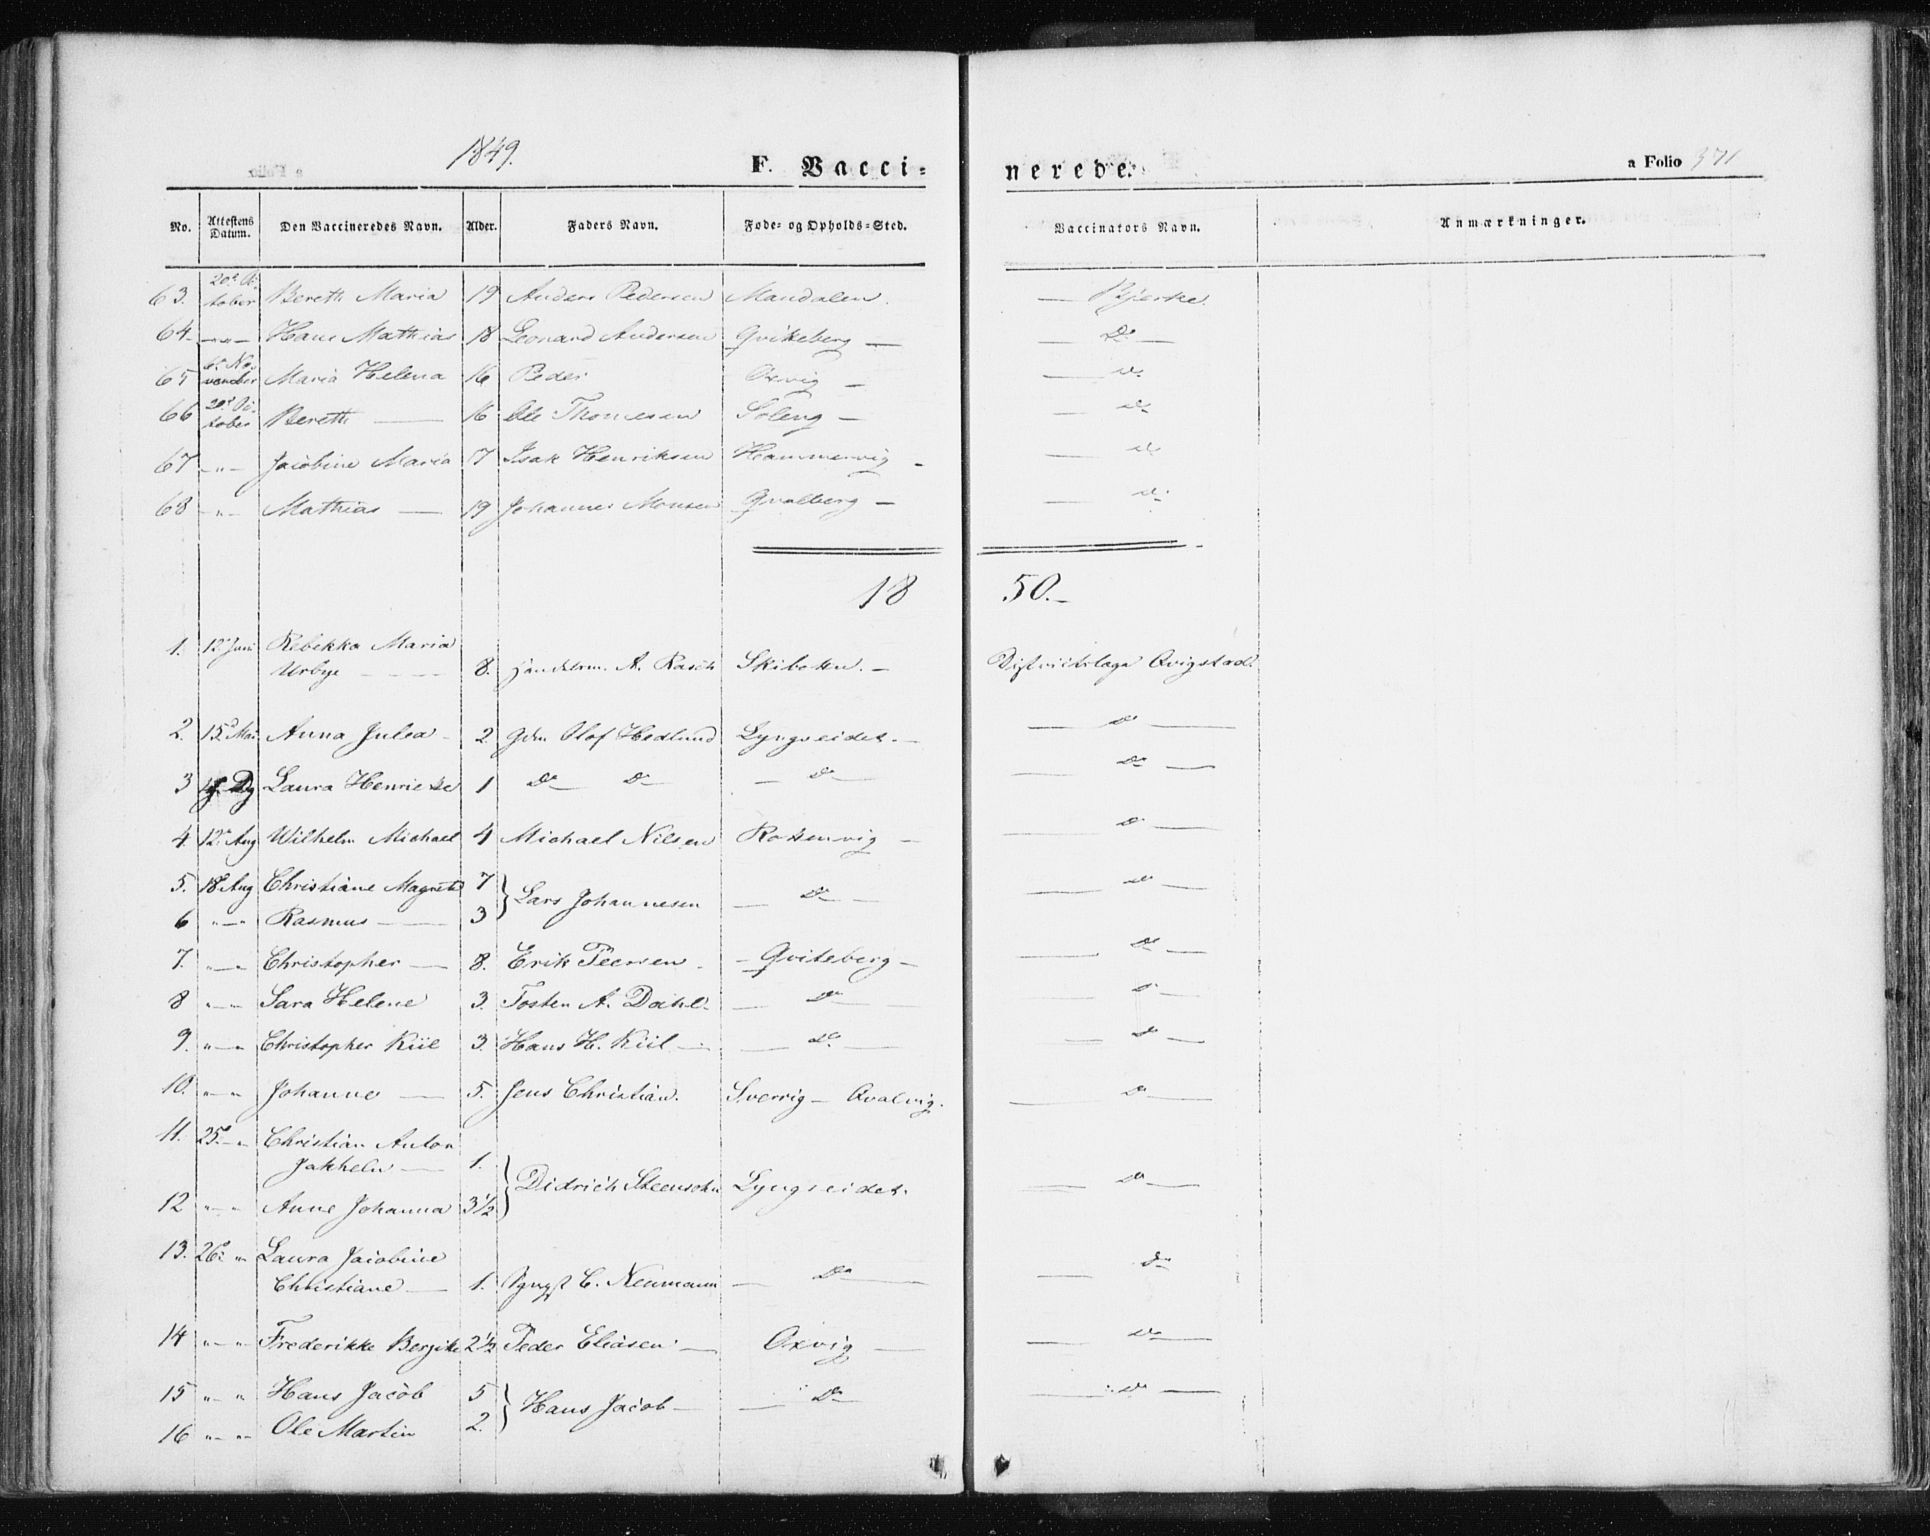 1849.
F. Vacci-
nerede.
a Folio 371
No. Attestens Datum. Den Vaccineredes Navn. Alder. Faders Navn. Føde- og Opholds-Sted. Vaccinators Navn. Anmærkninger.
63. 20de Oktober Bereth Maria 19 Anders Pedersen Mandalen. — Bjerke.
64. -"- Hans Mathias 18 Leonard Andersen Qviteberg — — Do —
65 6te November Maria Helena 16 Peder Oxvig — — do
66 20de Oktober Bereth — 16 Ole Thomesen Soleng — — do
67 -"- Jacobine Maria 17 Isak Henriksen Hammervig — — do
68 -"- Mathias — 19 Johannes Monsen Qvalberg — — do
18 50.
1. 12te Juni Rebekka Maria
Urbye — 8. Handelsm. A. Rasch Skibotten. — Districtslæge Qvigstad
2. 15de Mai Anna Julea 2 Gdm Olof Hedlund Lyngseidet. — — do —
3 Laura Henriette 1 Do Do — Do — — Do —
4 12te Aug Wilhelm Michael 4 Michael Nilsen Rottenvig — — do —
5. 18de Aug Christiane Magrete 7 } Lars Johannesen — Do — — do —
6 "—" Rasmus — 3
7. "—" Christopher — 8. Erik Peersen — Qviteberg — — do —
8 "—" Sara Helene 3. Tosten A. Dahl. — Do — — do —
9. "—" Christopher Kiil 3. Hans H. Kiil — — Do — — do —
10. "—" Johanne — 5. Jens Christian. Sverrig — Qvalvig. — do —
11. 25de " Christian Anton
Jakheln — 1. } Didrich Steensohn Lyngseidet. — do —
12 "—" Anne Johanna 3½
13. 26de " Laura Jacobine
Christiane — 1. C. Neumann — Do — — do
14 "—" Frederikke Bergite 2½ Peder Eliasen — Oxvig — — do —
15 "—" Hans Jacob 5 } Hans Jacob — — Do — do —
16 "—" Ole Martin 2.